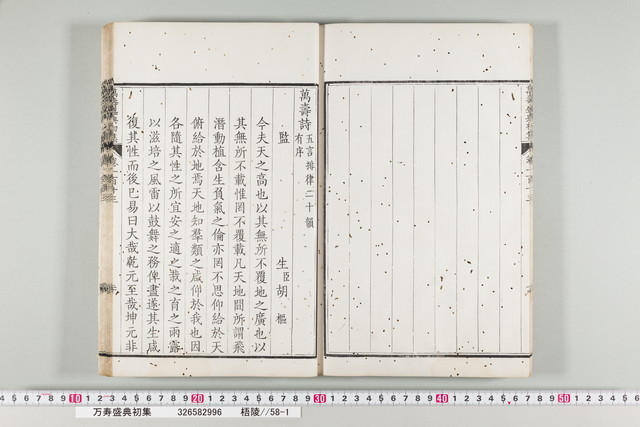 萬壽詩五言排律二十韻有序
監生臣胡樞
今夫天之高也以其無所不覆地之廣也以
其無所不載惟罔不覆載凡天地間所謂飛
潛動植含生負氣之倫亦罔不思仰給於天
俯給於地焉天地知羣類之咸仰於我也因
各隨其性之所宜安之適之栽之育之雨露
以滋培之風雷以鼓舞之務俾盡遂其生咸
復其性而後已易曰大哉乾元至哉坤元非
10 20 30 40 50
万寿盛典初集 326582996 梧陵//58-1